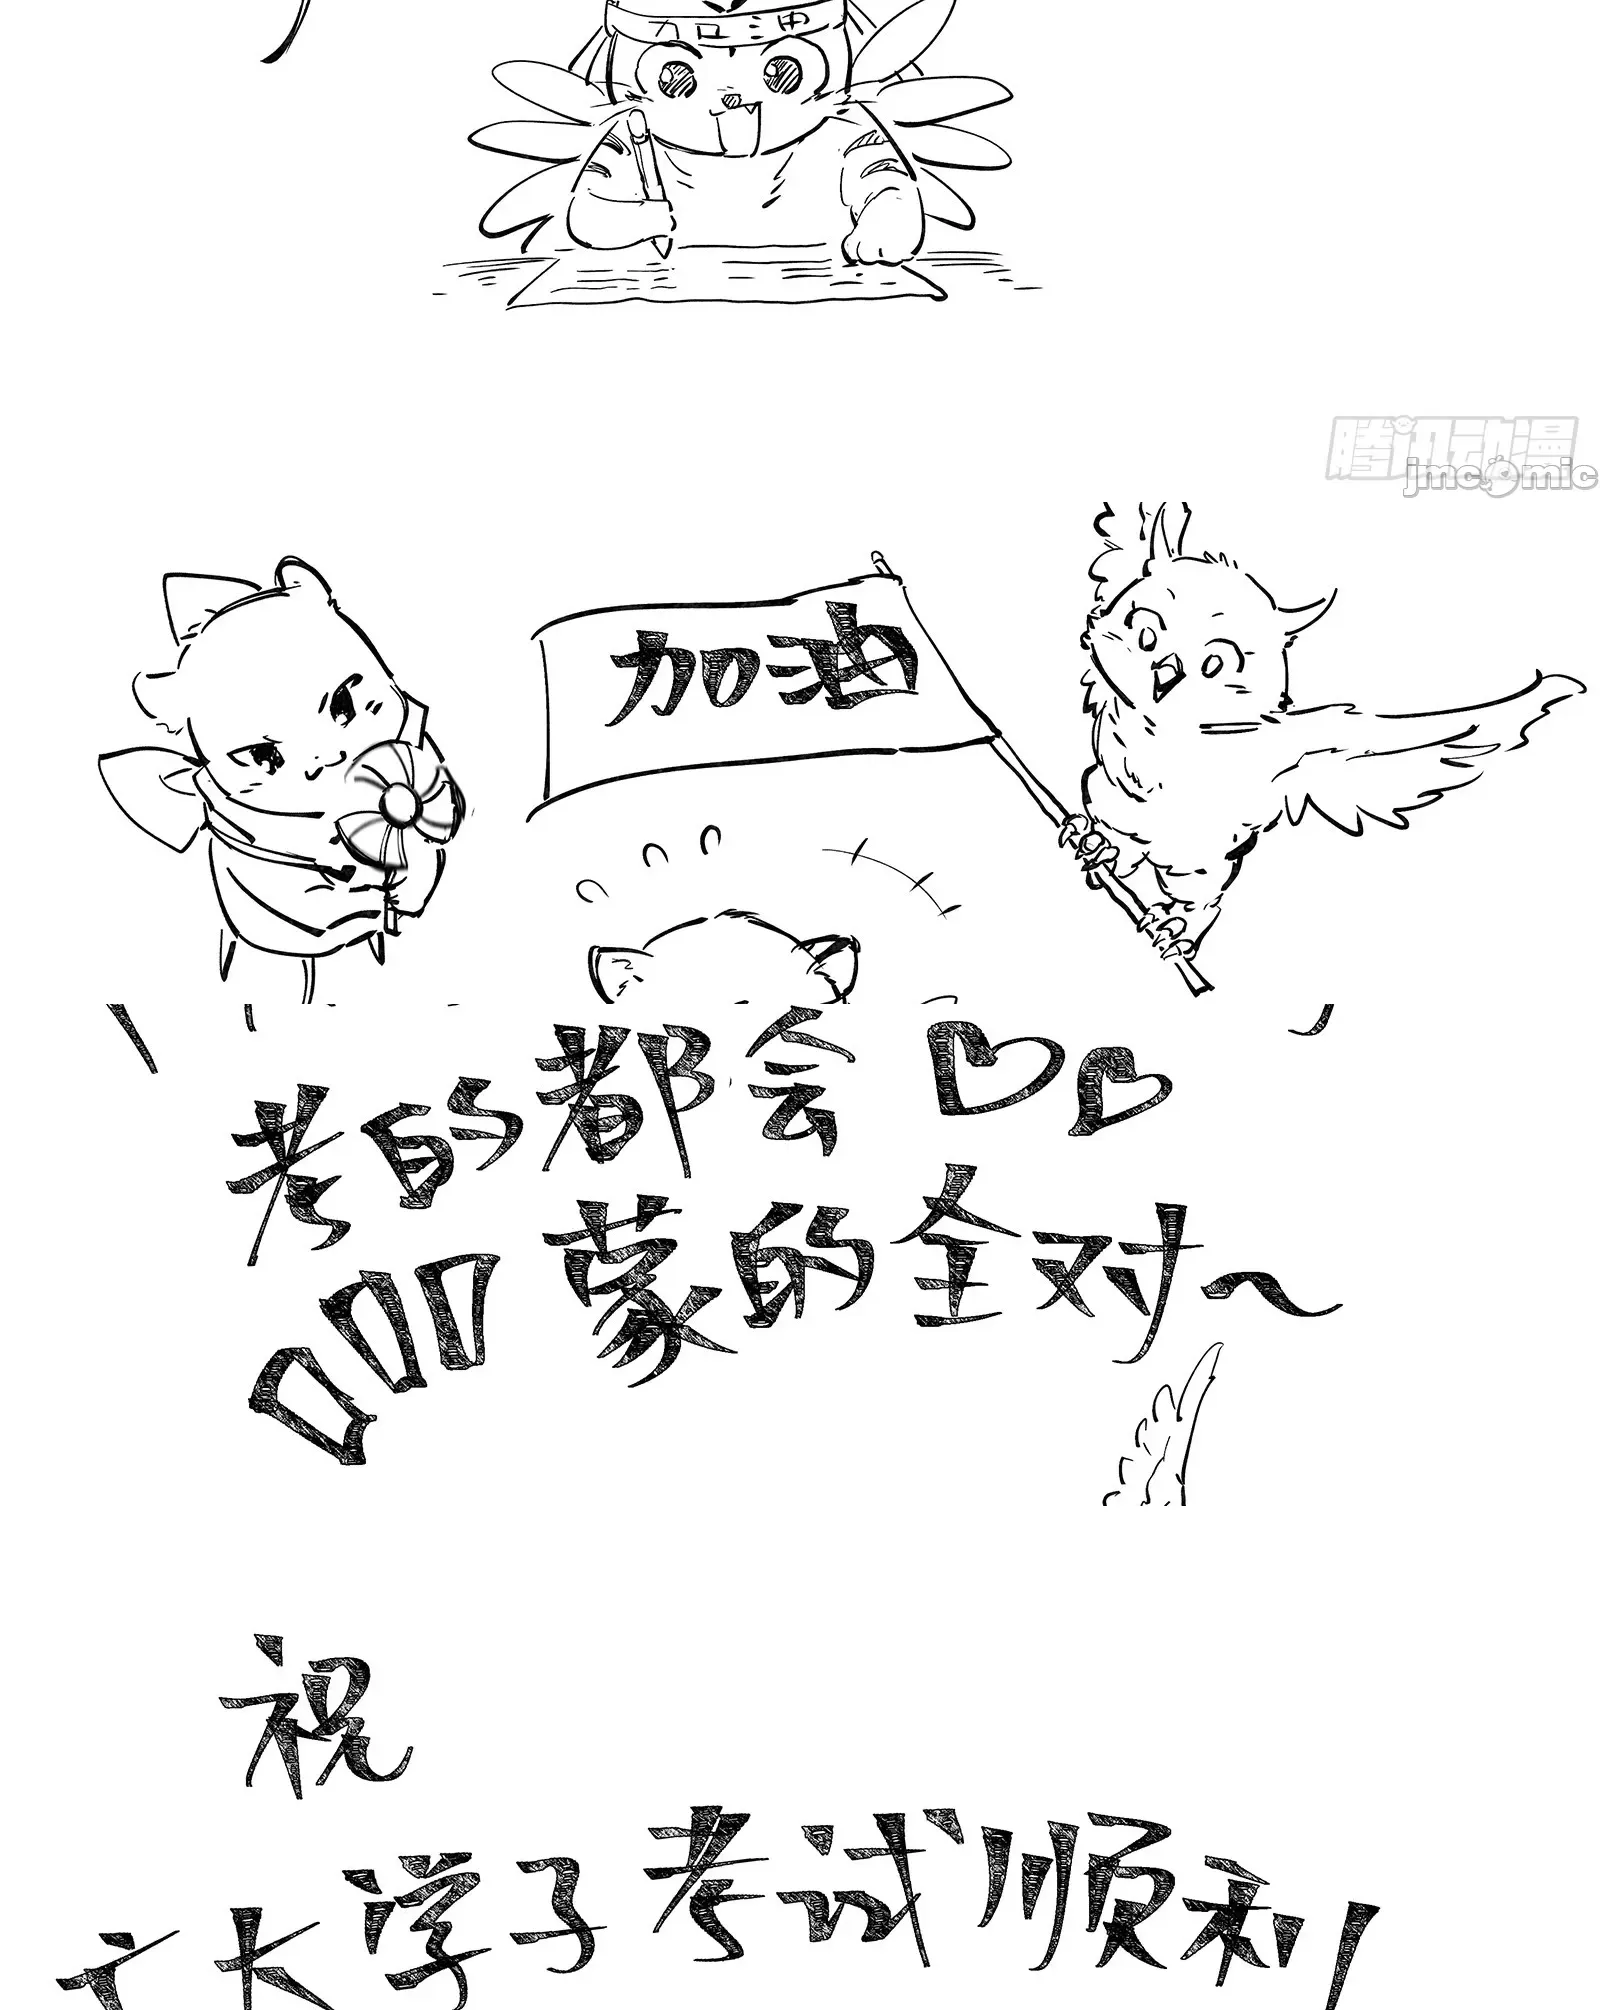 加油
腾讯动漫
jmcomic
加油
考的都会
蒙的全对~
祝
广大学子考试顺利